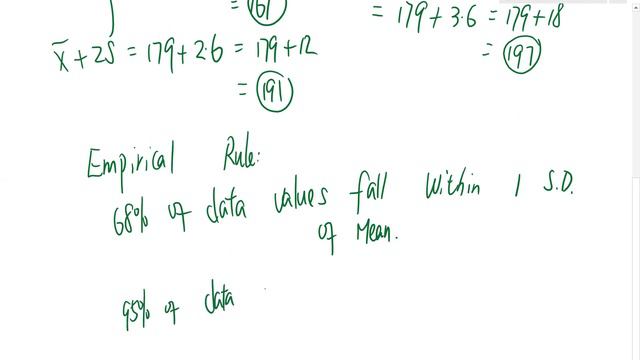 = 161
= 179 + 3·6 = 179 + 18
= 197
x̄ + 2S = 179 + 2·6 = 179 + 12
= 191
Empirical Rule:
68% of data values fall within 1 S.D.
of Mean.
95% of data